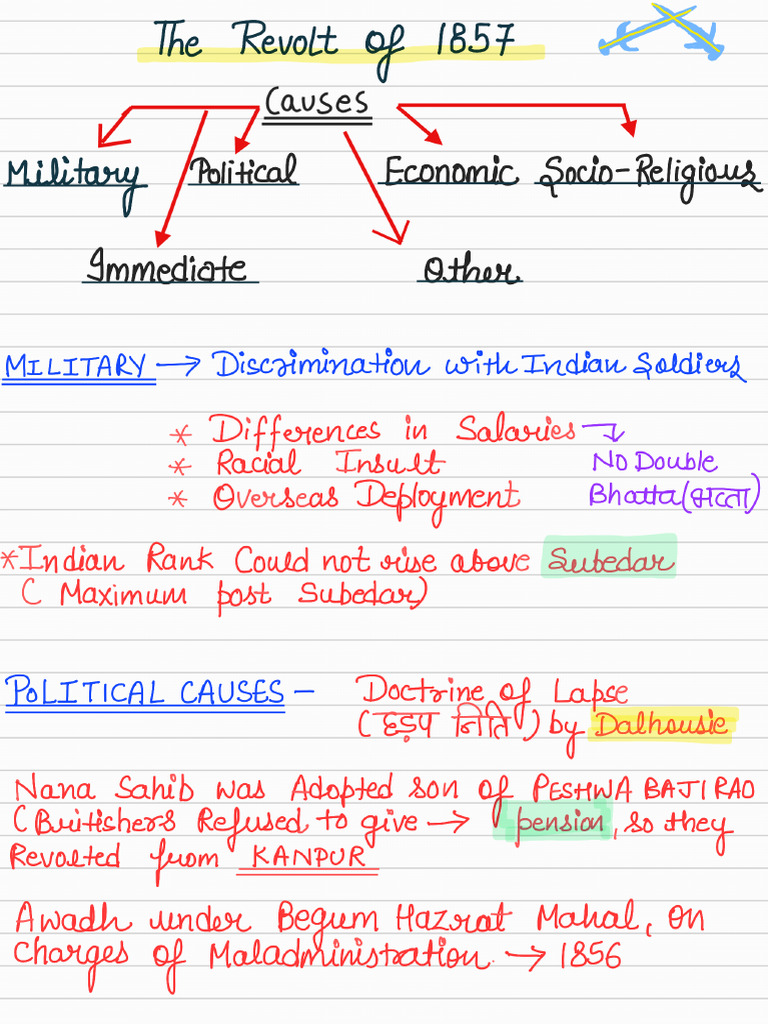 The Revolt of 1857
Causes
Military Political Economic Socio-Religious
Immediate Other
MILITARY → Discrimination with Indian Soldiers
* Differences in Salaries →
* Racial Insult No Double
* Overseas Deployment Bhatta (भत्ता)
* Indian Rank Could not rise above Subedar
( Maximum post Subedar)
POLITICAL CAUSES - Doctrine of Lapse
(हड़प निति) by Dalhousie
Nana Sahib was Adopted son of PESHWA BAJIRAO
(Britishers Refused to give → pension, so they
Revolted from KANPUR
Awadh under Begum Hazrat Mahal, on
Charges of Maladministration → 1856